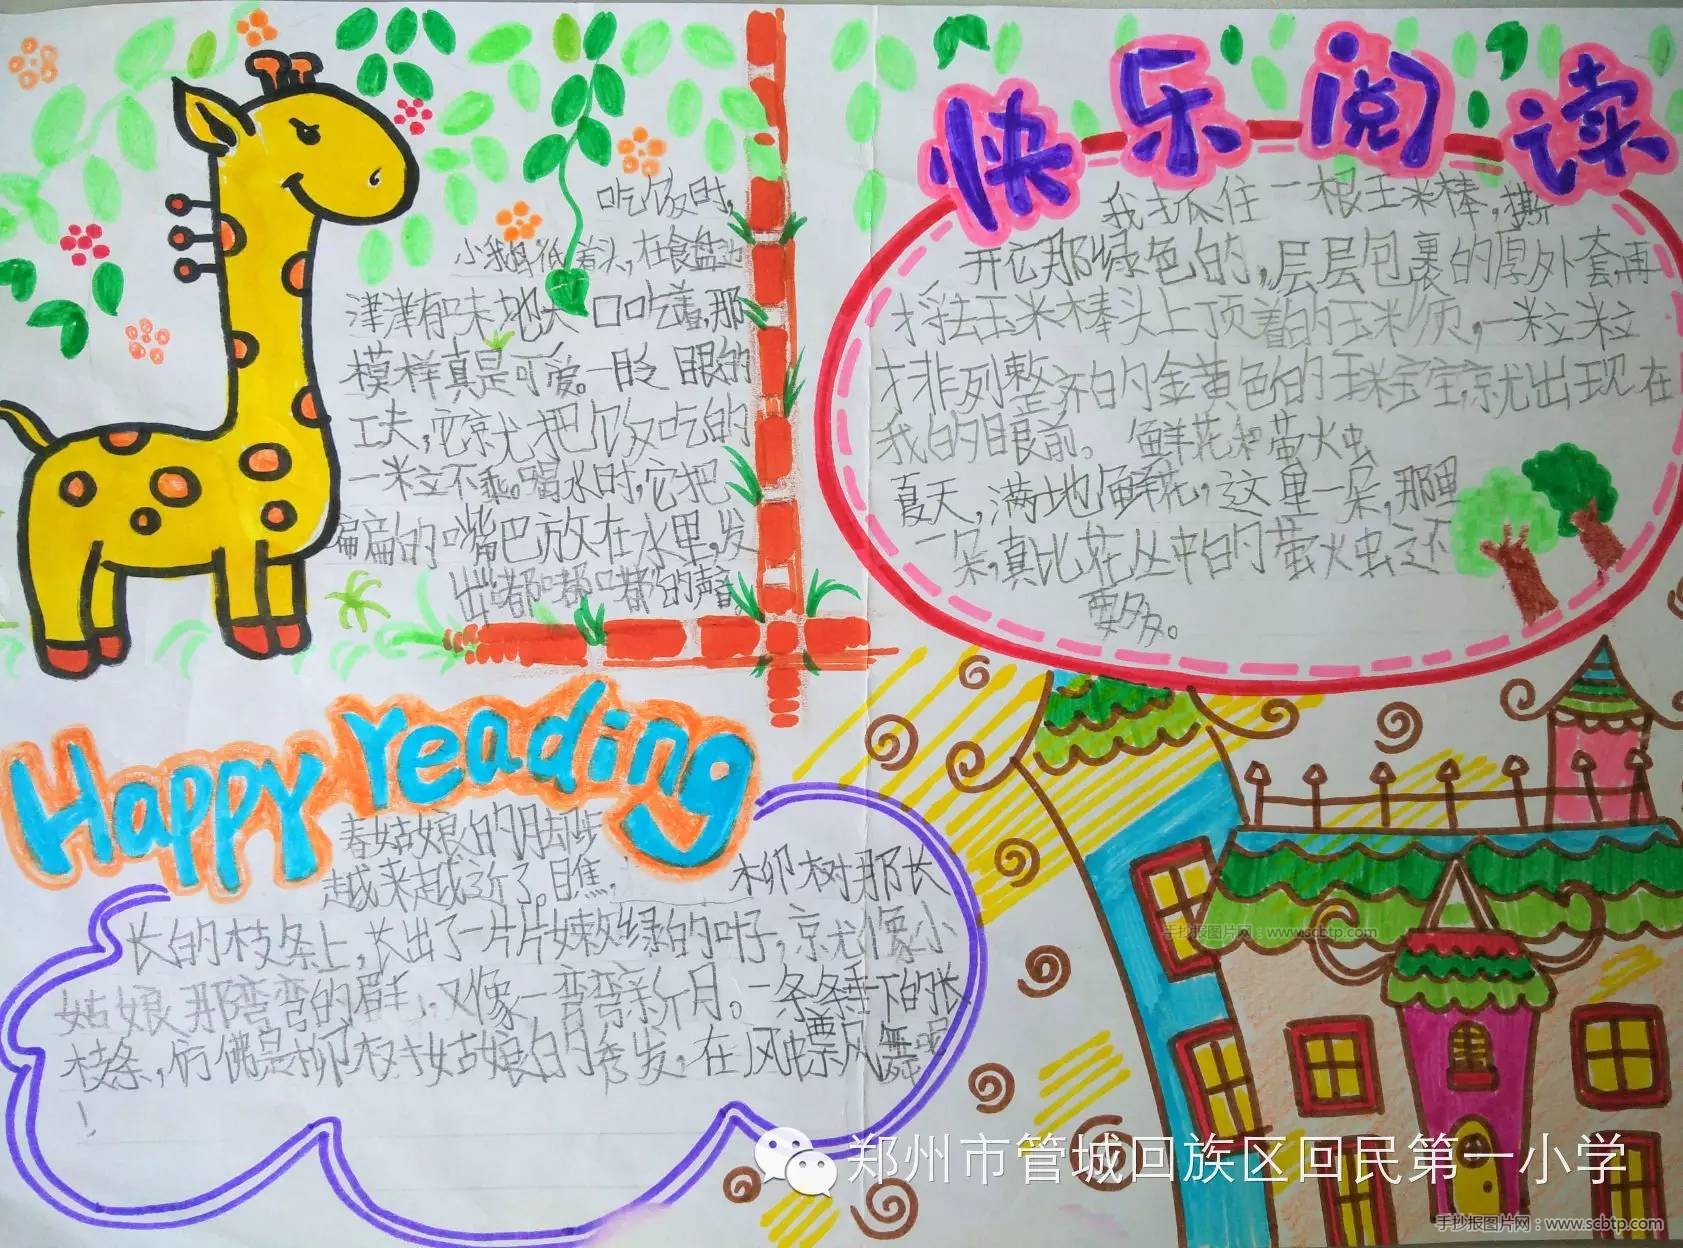 快乐阅读
吃饭时,
小我鸟低着头,在食盘边
津津有味地大口吃着,那
模样真是可爱。一眨眼的
工夫,它就把饭吃的
一粒不乘。喝水时,它把
扁扁的嘴巴放在水里,发
出“嘟嘟嘟”的声音。
我抓住一根玉米棒,撕
开它那绿色的,层层包裹的厚外套,再
捋去玉米棒头上顶着的玉米须,一粒粒
排列整齐的金黄色的珠宝宝就出现在
我的眼前。 鲜花和萤火虫
夏天,满地鲜花,这里一朵,那里
一朵,真比花丛中的萤火虫还
要多。
Happy reading
春姑娘的脚步
越来越近了。瞧, 柳树那长
长的枝条上,长出了一片片嫩绿的叶子,就像小
姑娘那弯弯的眉毛,又像一弯弯新月。一条条垂下的长
枝条,仿佛是柳树姑娘的秀发,在风中飘风舞呢
!
手抄报图片网:www.scbtp.com
郑州市管城回族区回民第一小学
手抄报图片网:www.scbtp.com